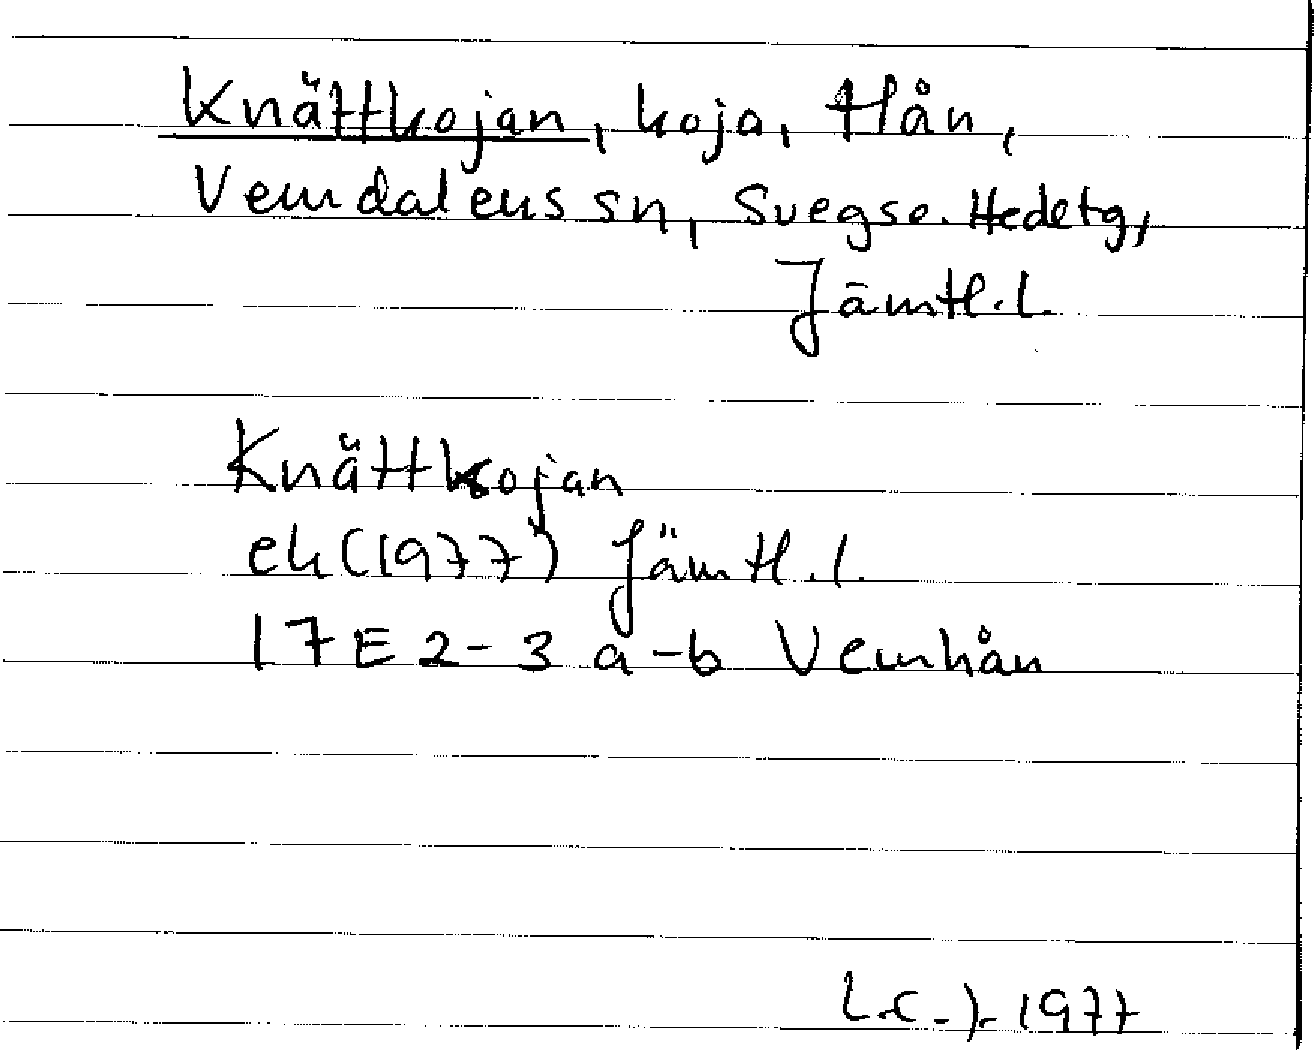 Knättkojan, koja, Hån,
Vemdalens sn, Svegs o. Hede tg,
Jämtl. l.
Knättkojan
ek (1977) Jämtl. l.
17E 2-3 a-b Vemhån
1977